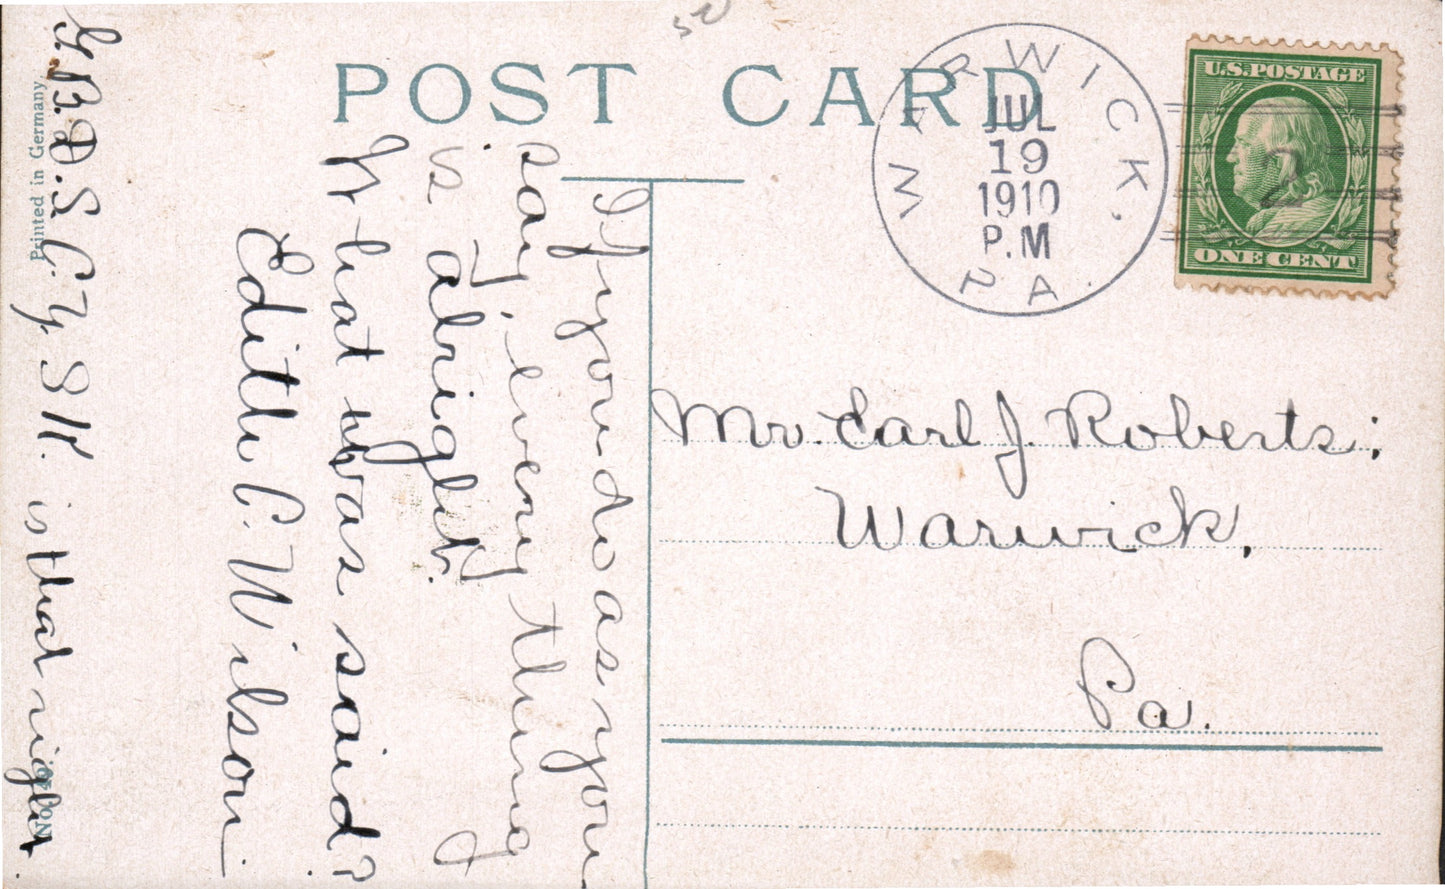 POST CARD
WARWICK, PA.
JUL
19
1910
P.M
U.S. POSTAGE
2
ONE CENT
Mr. Earl J. Roberts;
Warwick,
Pa.
If you do as you
say, every thing
is alright.
What was said?
Edith C. Wilson
is that right
Printed in Germany
No.